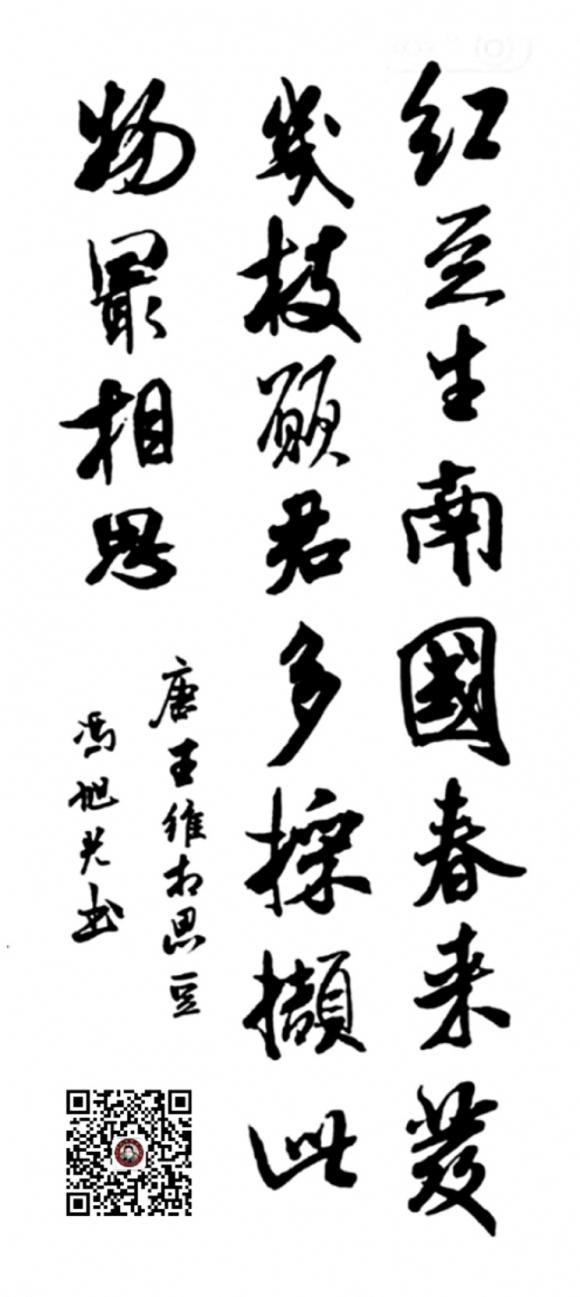 红豆生南國春来發
幾枝願君多採擷此
物最相思
唐王维相思豆
冯旭光书